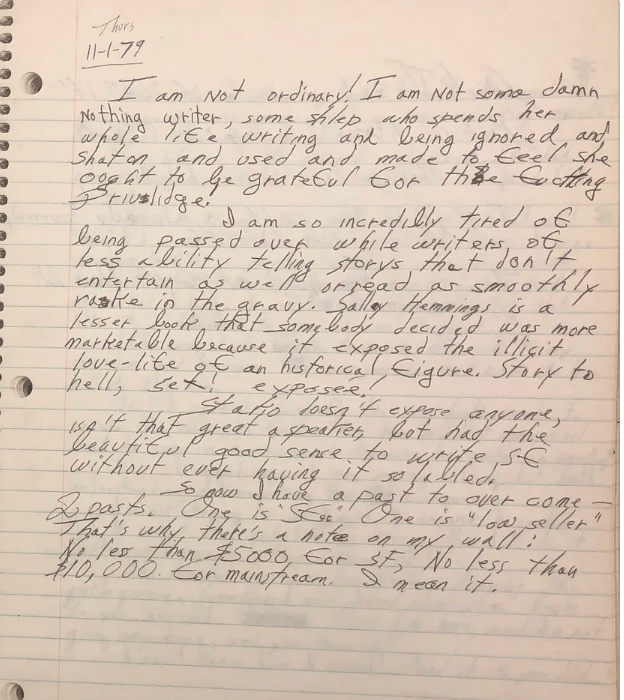 Thurs
11-1-79
I am Not ordinary! I am Not some damn
Nothing writer, some shlep who spends her
whole life writing and being ignored and
shat on, and used and made to feel she
ought to be grateful for the fucking
Priuslidge.
I am so incredibly tired of
being passed over while writers of
less ability telling storys that don't
entertain as well or read as smoothly
rake in the gravy. Sally Hemmings is a
lesser book that somebody decided was more
marketable because it exposed the illicit
love-life of an historical figure. Story to
hell, sex! exposee!
doesn't expose anyone,
isn't that great a speaker, but had the
beautiful good sense to write S-F
without ever having it so labled.
So now I have a past to over come –
2 pasts. One is "SFer" One is "low seller"
That's why there's a note on my wall:
No less than $5000 for SF, No less than
$10,000. for mainstream. I mean it.